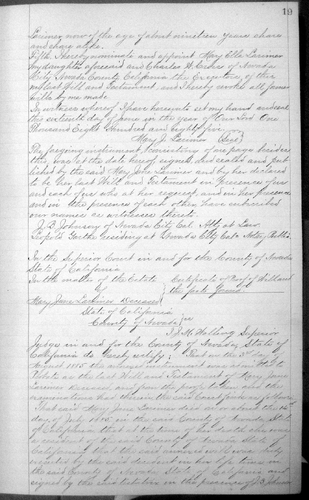 19
Larimer now of the age of about nineteen years share
and share alike.
Fifth I hereby nominate and appoint Mary Ella Larimer
my daughter aforesaid and Charles H. of Nevada
City Nevada County California the Executors of this
my last Will and Testament, and hereby revoke all former
wills by me made.
In witness whereof I have hereunto set my hand and seal
the day of June in the year of our Lord One
Thousand Eight Hundred and eighty five
Mary J. Larimer (Seal)
The foregoing instrument, consisting of one page besides
this, was at the date hereof signed and sealed and pub
lished by the said Mary Jane Larimer and by her declared
to be her last Will and Testament in presence of us
and each of us who at her request and in her presence
and in the presence of each other have subscribed
our names as witnesses thereto.
J. B. Johnson of Nevada City Cal. Atty at Law
residing at Nevada City Cal. Notary Public
In the Superior Court in and for the County of Nevada
State of California
In the matter of the Estate
of
Certificate of Proof of Will and
the facts found
Mary Jane Larimer Deceased
State of California
County of Nevada } ss
I, J. M. Walling Superior
Judge in and for the County of Nevada, State of
California do hereby certify: That on the 3rd day of
August 1885 the annexed instrument was admitted to
Probate as the last Will and Testament of Mary Jane
Larimer Deceased and from the proofs taken and the
examination had therein the said Court finds as follows:
That said Mary Jane Larimer died on about the
day of July 1885 in the said County of Nevada State
of California that at the time of her death she was
a resident of the said County of Nevada State of
California that the said annexed will was duly
executed by the said decedent in her life time in
the said County of Nevada State of California and
signed by the said testatrix in the presence of J. B. Johnson